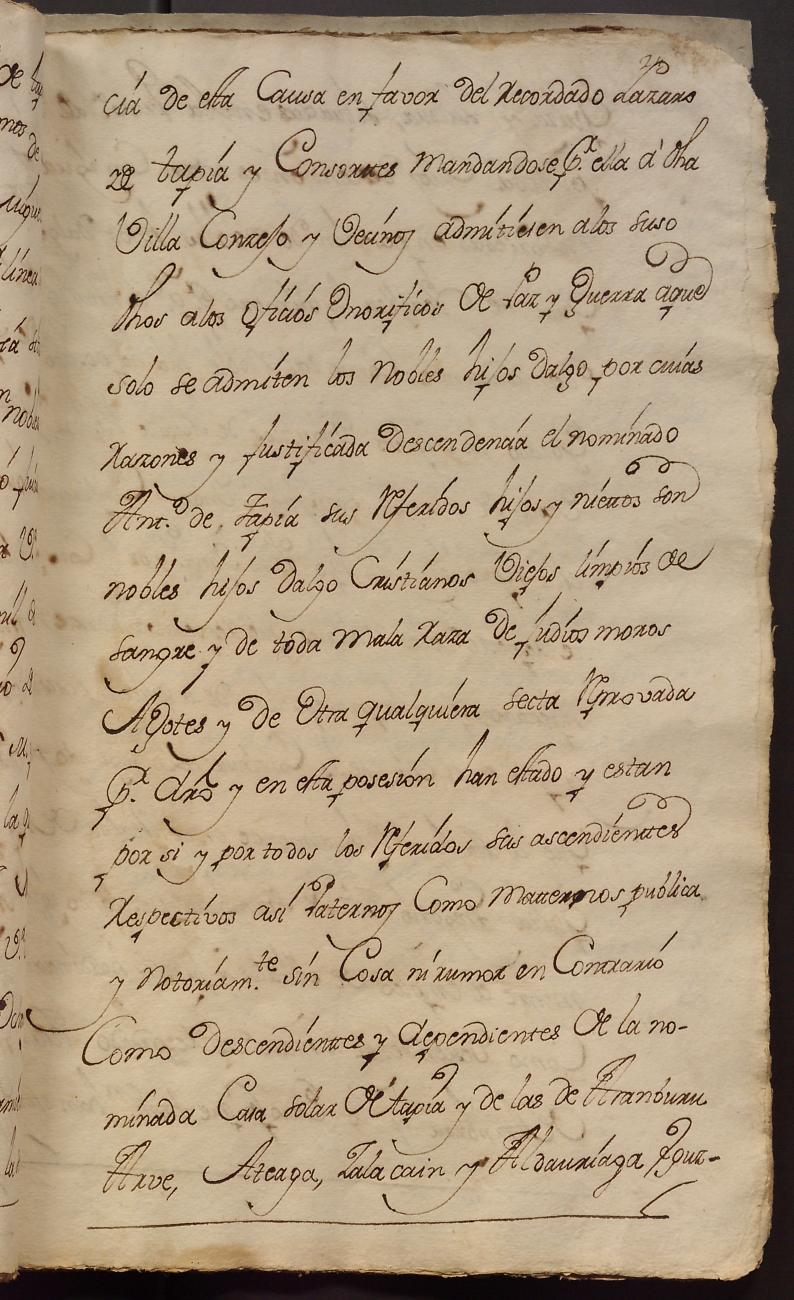 cia de esta Causa en favor del Recordado Lazaro
de tapia y Consortes Mandandose Pr. ella a dha
Villa Conzejo y Vecinos admitiesen a los suso
dhos a los Oficios Onorificos de Paz y Guerra a que
solo se admiten los Nobles hijos Dalgo, por cuias
Razones y Justificada Descendencia el nominado
Ant.º de Tapia sus Referidos hijos y niettos son
nobles hijos Dalgo Cristianos Viejos limpios de
sangre y de toda Mala Raza de Judios moros
Agotes y de Otra qualquiera secta Reprovada
Pr. dro y en esta posesión han estado y estan
por si y por todos los Referidos sus ascendienttes
Respectivos asi Paternos Como Matternos publica
y Notoriam.te sin Cosa ni rumor en Contrario
Como Descendienttes y dependientes de la no-
minada Casa solar de tapia y de las de Aranburu
Arve, Ateaga, Zalacain y Aldauriaga